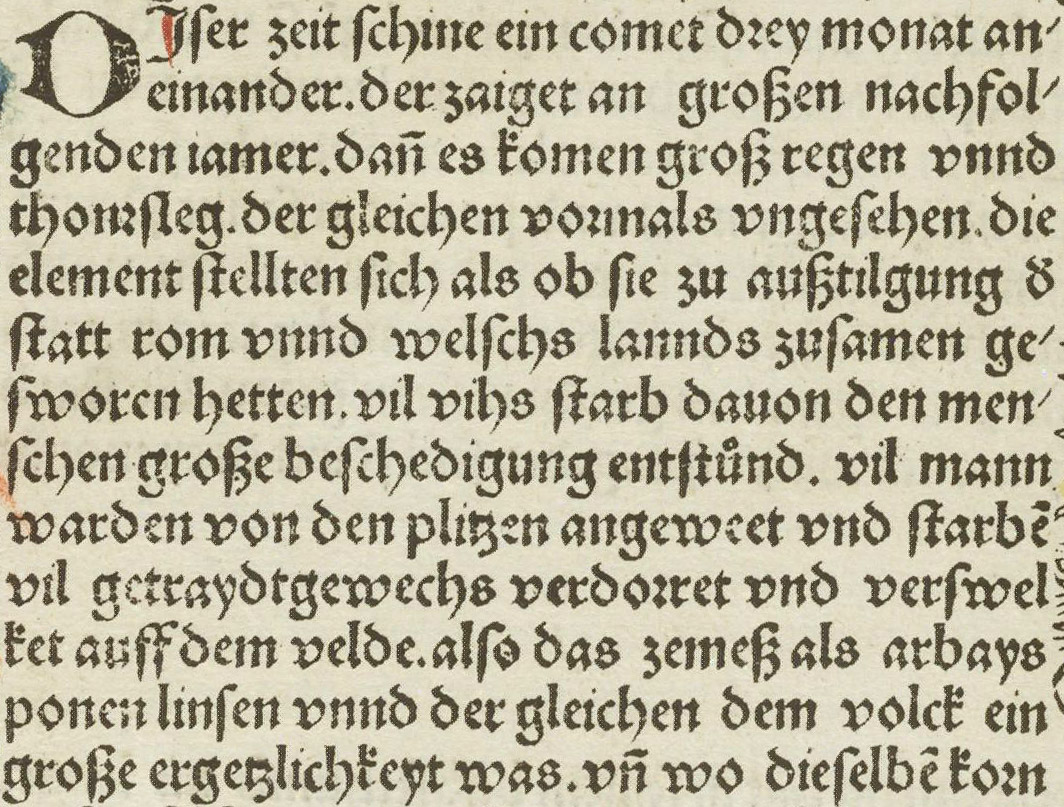 DJser zeit schine ein comet drey monat an⸗
einander. der zaiget an großen nachfol⸗
genden iamer. dañ es komen groß regen vnnd
thonrsleg. der gleichen vormals vngesehen. die
element stellten sich als ob sie zu außtilgung d̄
statt rom vnnd welschs lannds zusamen ge⸗
sworen hetten. vil vihs starb dauon den men⸗
schen große beschedigung entstůnd. vil mann
warden von den plitzen angeweet vnd starbē
vil getraydtgewechs verdorret vnd verswel
ket auff dem velde. also das zemeß als arbays
ponen linsen vnnd der gleichen dem volck ein
große ergetzlichkeyt was. vñ wo dieselbē korn